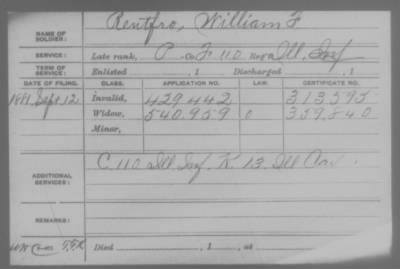 NAME OF SOLDIER: Rentfro, William F
SERVICE: Late rank, P Co. F 110 Reg't Ill. Inf
TERM OF SERVICE: Enlisted , 1 Discharged , 1
DATE OF FILING. CLASS. APPLICATION NO. LAW. CERTIFICATE NO.
Sept. 12 Invalid, 429.442 313.595
Widow, 540.959 359.840
Minor,
ADDITIONAL SERVICES: C. 110 Ill. Inf. K. 13. Ill Cav.
REMARKS:
Died , 1 , at